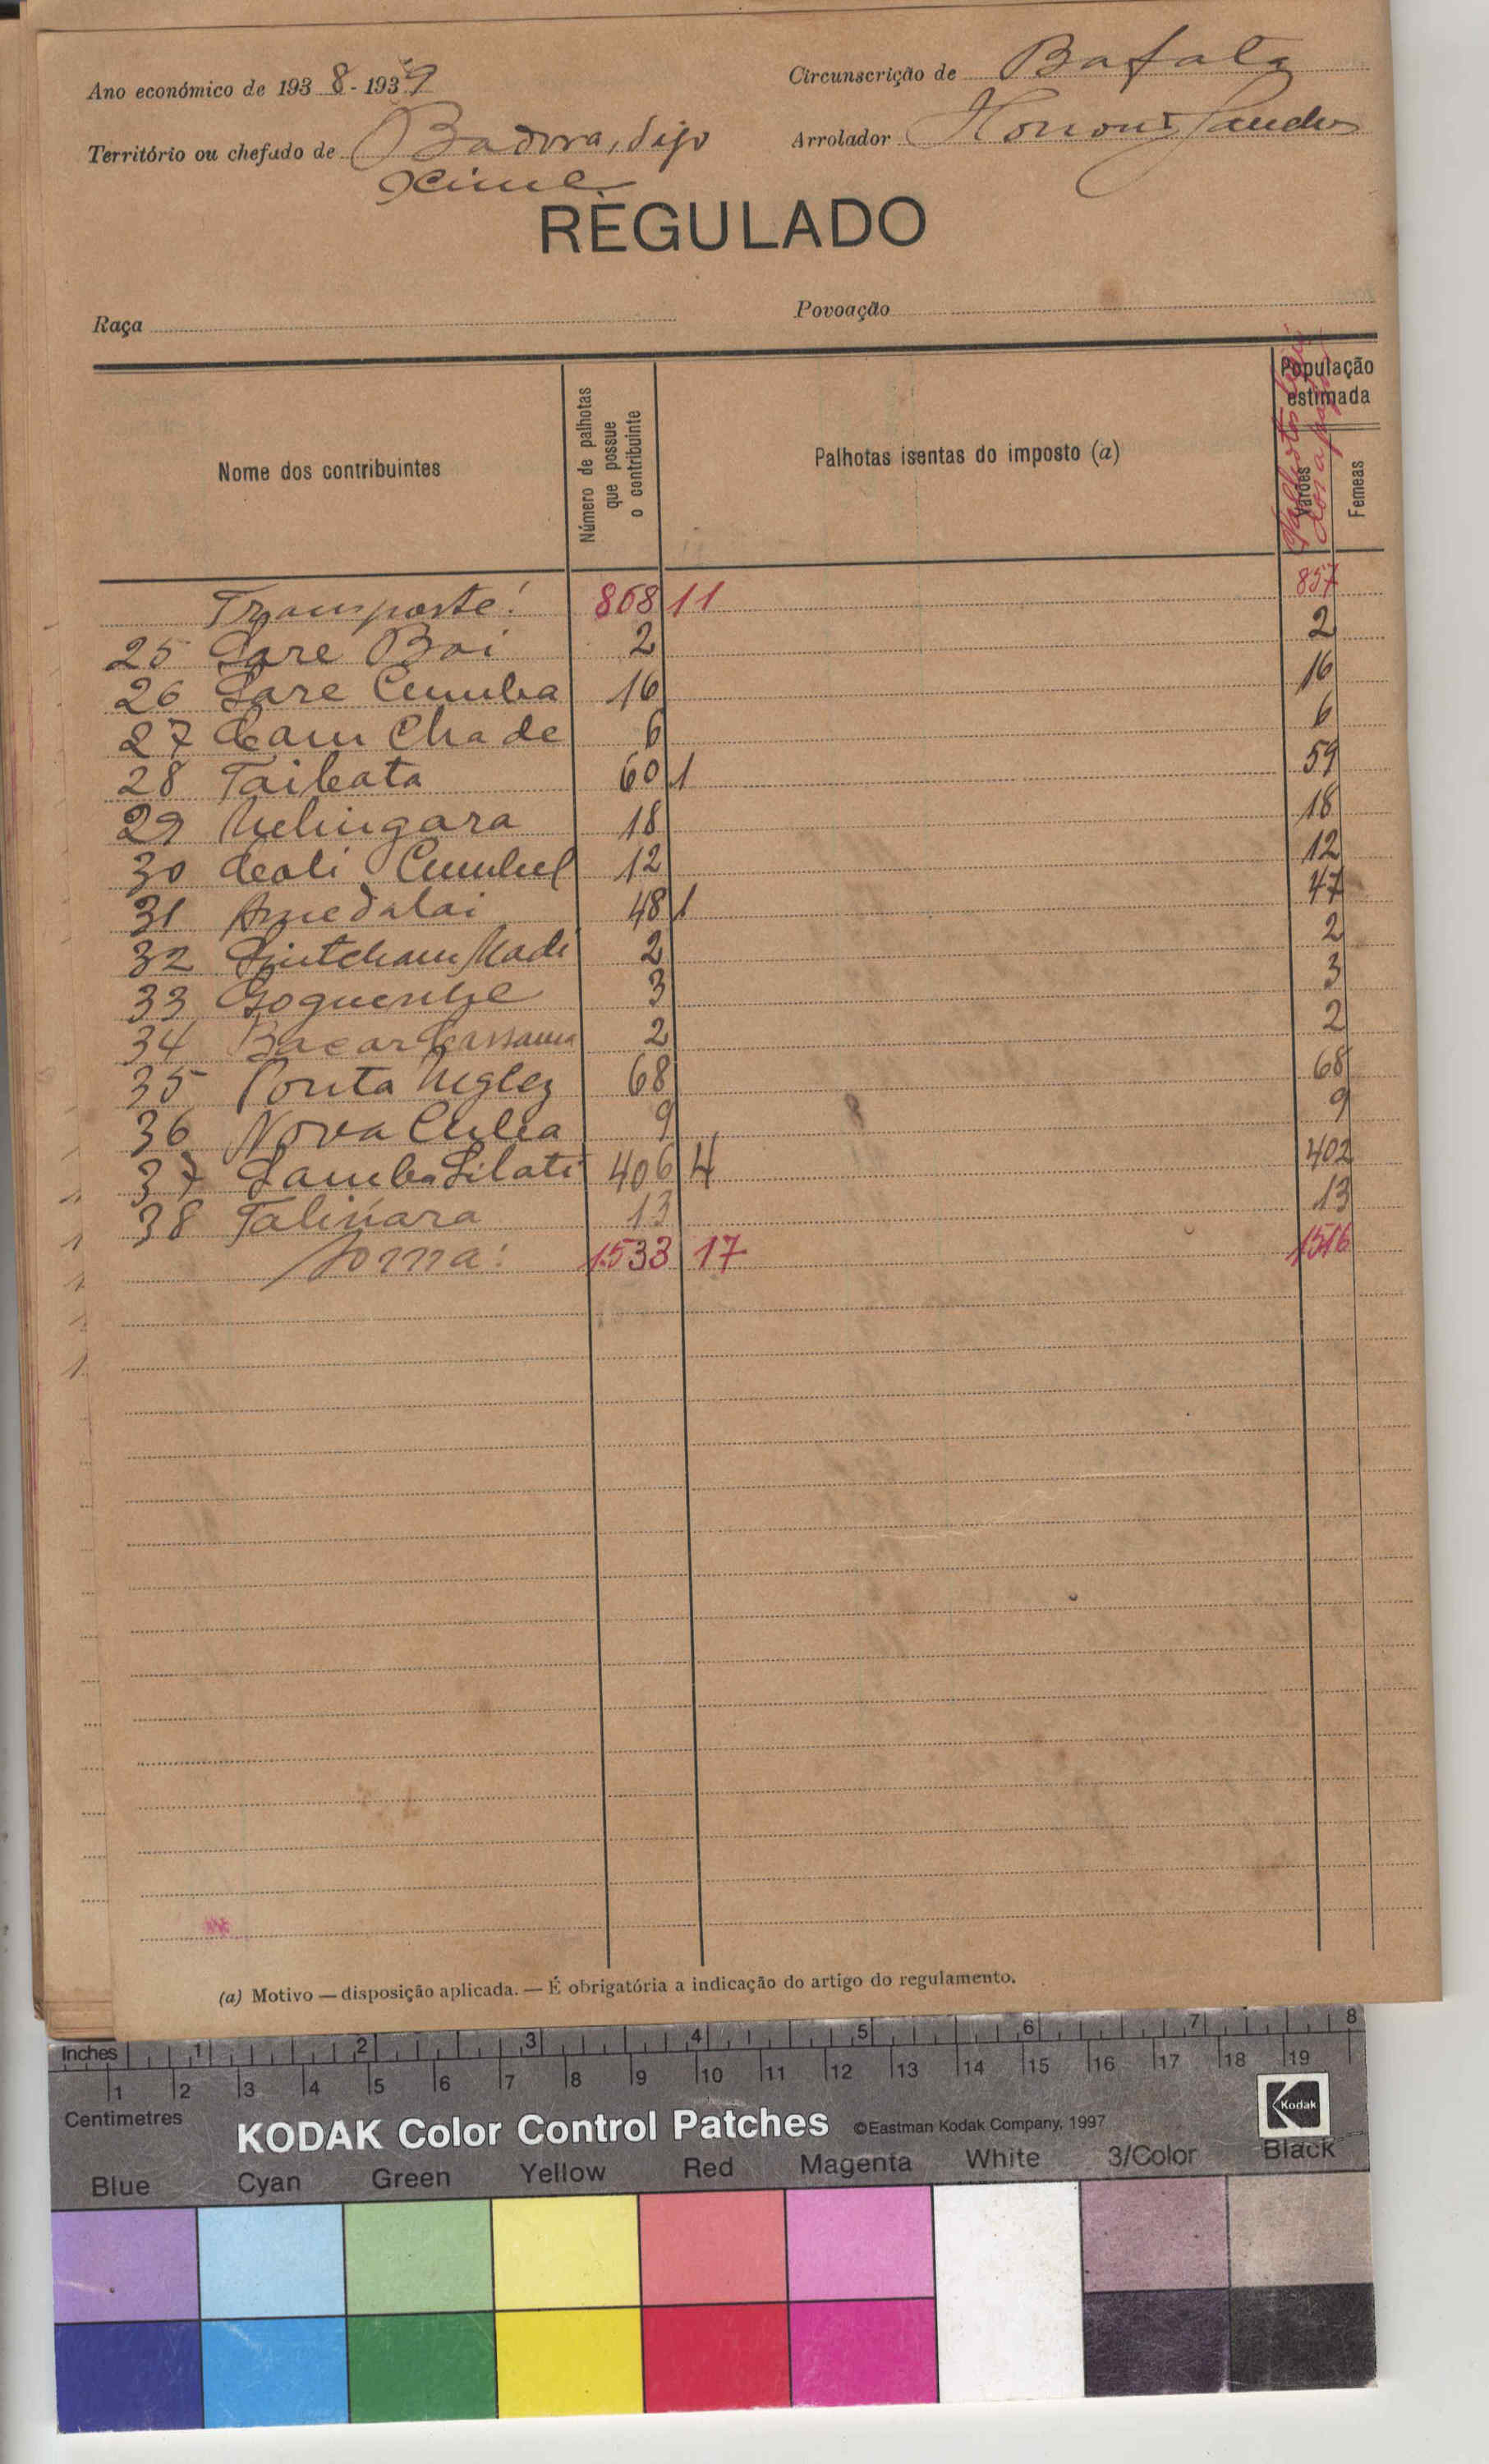 Ano económico de 1938-1939
Circunscrição de Bafata
Território ou chefado de Badora, digo
Arrolador
Xime
REGULADO
Raça
Povoação
Nome dos contribuintes
Número de palhotas que possue o contribuinte
Palhotas isentas do imposto (a)
População estimada
Varões
Femeas
Transporte: 868 11 857
25 Sare Boi 2 2
26 Sare Cumba 16 16
27 Cam Chade 6 6
28 Taibata 60 1 59
29 18 18
30 12 12
31 Amedalai 48 1 47
32 Sintcham Madi 2 2
33 3 3
34 Bacar 2 2
35 Ponta Inglez 68 68
36 Nova Cuba 9 9
37 Samba Silati 406 4 402
38 Taliuara 13 13
Soma: 1.533 17 1516
(a) Motivo — disposição aplicada. — É obrigatória a indicação do artigo do regulamento.
Inches 1 2 3 4 5 6 7 8
1 2 3 4 5 6 7 8 9 10 11 12 13 14 15 16 17 18 19
Centimetres
KODAK Color Control Patches ©Eastman Kodak Company, 1997 Kodak
Blue Cyan Green Yellow Red Magenta White 3/Color Black